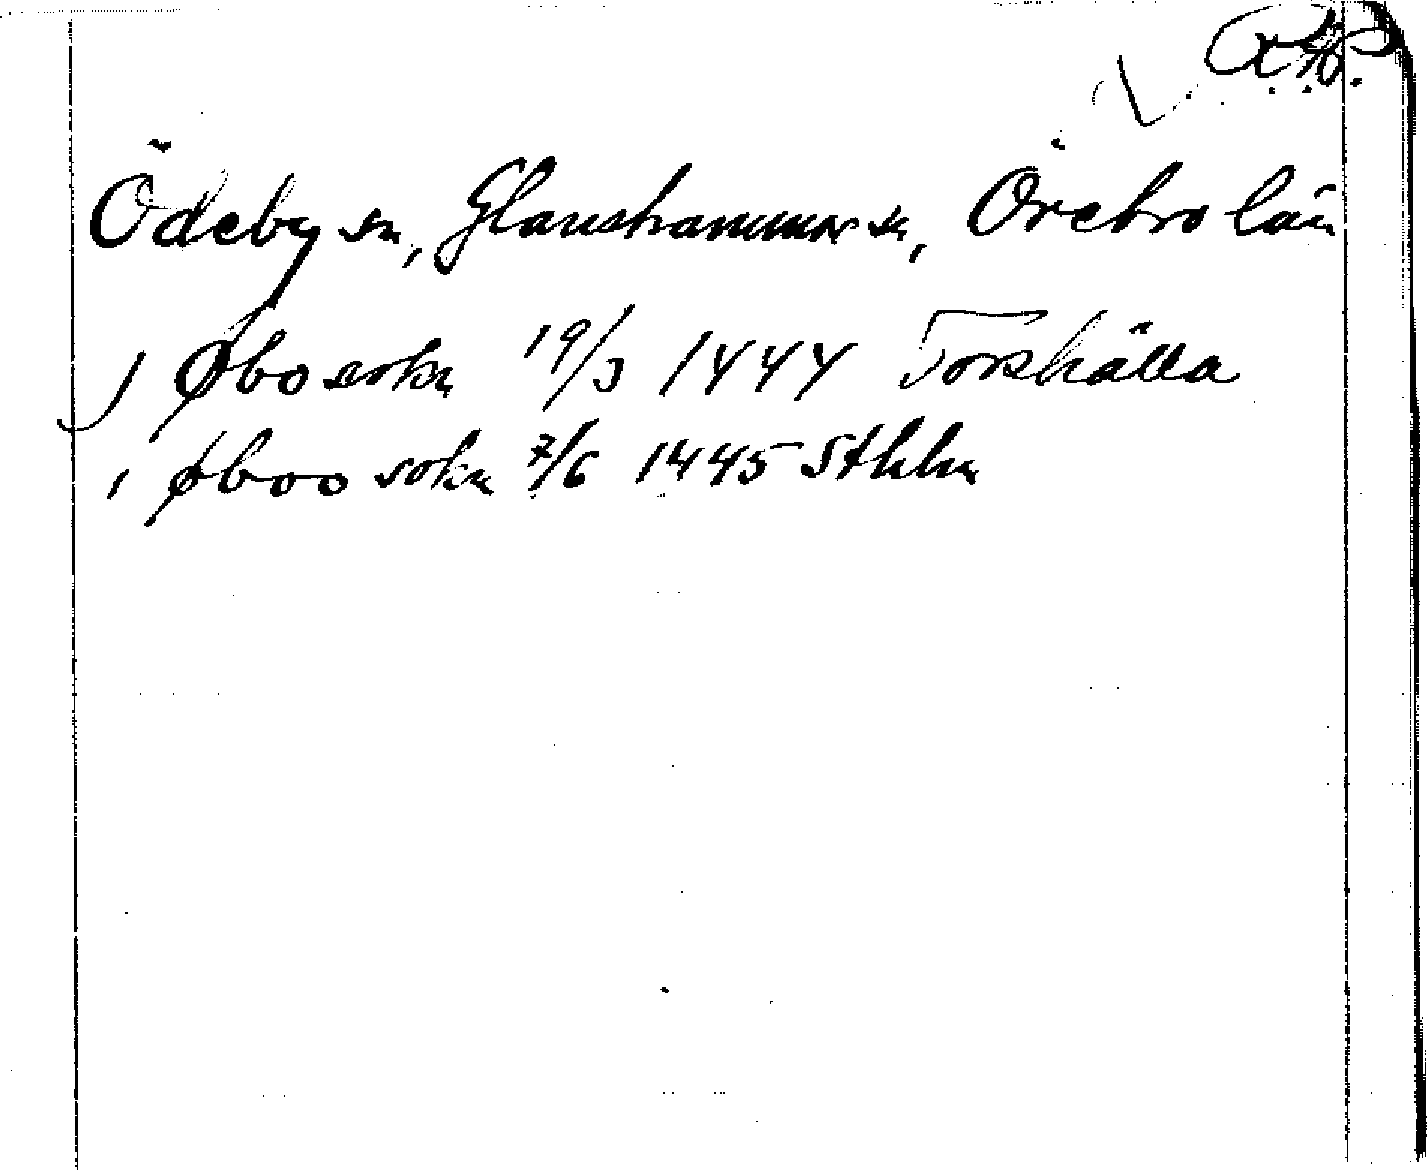 R.A.P.
Ödeby sn, Glanshammar sn, Örebro län
j Øbo sokn 19/3 1444 Torshälla
i øboo sokn 7/6 1445 Sthlm